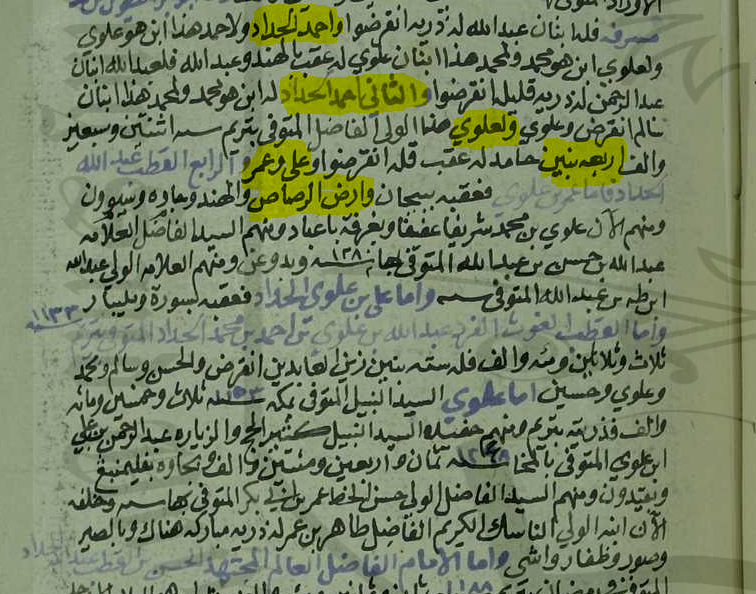 مصرفه فلها بنان عبد الله له ذريه انقرضوا واحمد الحداد ولاحمد هذا ابن هو علوي
ولعلوي ابن هو محمد ولمحمد هذا ابنان علوي له عقب بالهند وعبد الله فلعبد الله ابنان
عبد الرحمن له ذريه قليله انقرضوا والثاني احمد الحداد له ابن هو محمد ولمحمد هذا ابنان
سالم انقرض وعلوي ولعلوي هذا الولي الفاضل المتوفى بتريم سنه اثنتين وسبعين
والف اربعه بنين حامد له عقب قله انقرضوا وعلي وعمر والرابع القطب عبد الله
الحداد فاما عمر بن علوي فعقبه بسيحان وارض الرصاص والهند وجاوه وسيوون
ومنهم الآن علوي بن محمد شريفا عفيفا وبغرفة باعباد ومنهم السيد الفاضل العلامه
عبد الله بن حسن بن عبد الله المتوفى بها سنه ١٢٨ وبدوعن ومنهم العلامه الولي عبد الله
ابن طه بن عبد الله المتوفى سنه واما علي بن علوي الحداد فعقبه بسورة ومليبار
واما القطب الغوث الفرد عبد الله بن علوي بن احمد بن محمد الحداد المتوفى بتريم سنه ١١٣٣
ثلاث وثلاثين ومئه والف فله سته بنين زين العابدين انقرض والحسن وسالم ومحمد
وعلوي وحسين اما علوي السيد النبيل المتوفى بمكه سنه ثلاث وخمسين ومائه
والف فذريته بتريم ومنهم حفيده السيد النبيل كثير الحج والزياره عبد الرحمن بن علي
ابن علوي المتوفى بالمخا سنه ثمان واربعين ومئتين والف وبجاوه بفليمبنغ
وبقيدون ومنهم السيد الفاضل الولي حسن الخط عمر بن ابي بكر المتوفى بها سنه وخلفه
الآن ابنه الولي الناسك الكريم الفاضل طاهر بن عمر له ذريه مباركه هناك وبالصير
وصور وظفار واشي واما الامام الفاضل العالم المجتهد الحسن بن القطب عبد الله الحداد